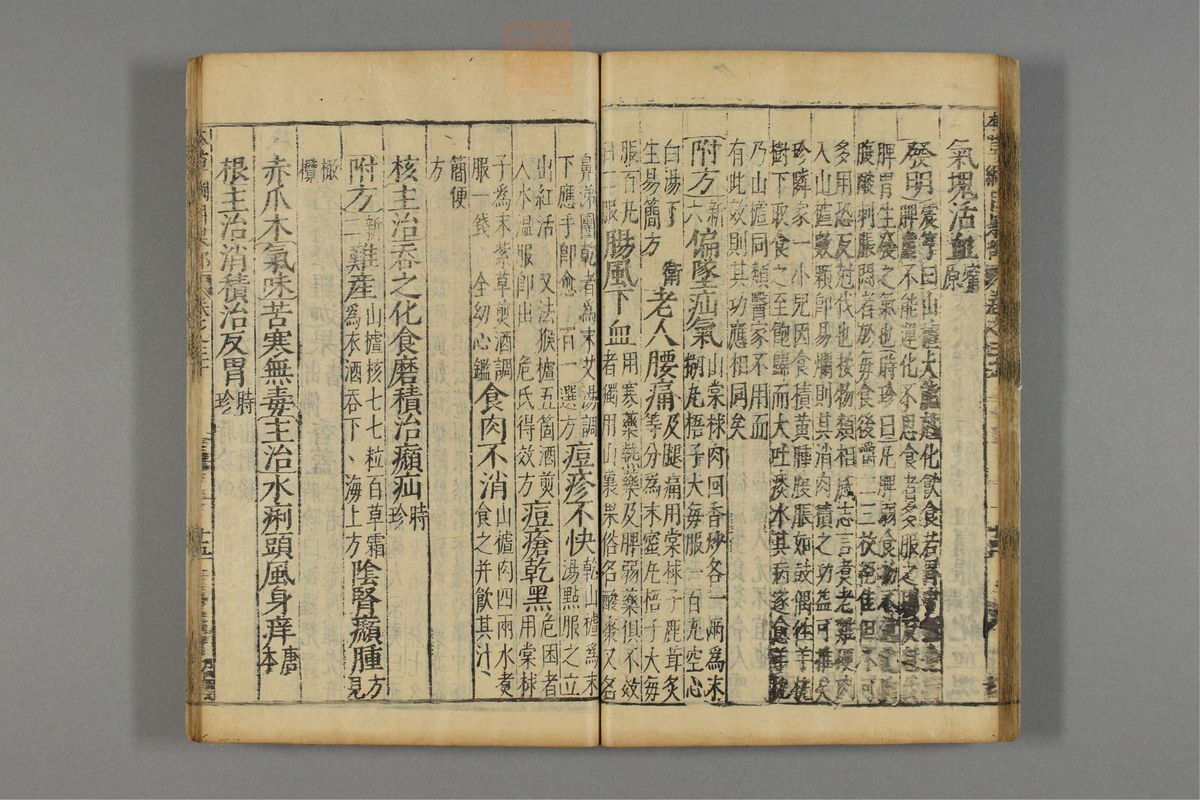 氣塊活血 甯原
發明 震亨曰山樝大能尅化飲食若胃中
脾虛不能運化不思食者多服之則反尅伐
脾胃生發之氣也時珍曰凡脾弱食物不
腹酸刺脹悶者於每食後嚼二三枚絕佳但不可
多用恐反尅伐也按物類相感志言煑老雞硬肉
入山樝數顆卽易爛則其消肉積之功蓋可推矣
珍隣家一小兒因食積黃腫腹脹如鼓偶往羊杭
樹下取食之至飽歸而大吐痰水其病遂愈羊杭
乃山樝同類醫家不用而
有此效則其功應相同矣
附方 新六 偏墜疝氣 山棠梂肉回香炒各一兩爲末
糊丸梧子大每服一百丸空心
白湯下 衛
生易簡方 老人腰痛 及腿痛用棠梂子鹿茸炙
等分爲末蜜丸梧子大每
服百丸
日二服 腸風下血 用寒藥熱藥及脾弱藥俱不效
者獨用山裏果俗名酸棗又名
鼻涕團乾者爲末艾湯調
下應手卽愈 百一選方 痘疹不快 乾山樝爲末
湯點服之立
出紅活 又法猴樝五箇酒煎
入水溫服卽出 危氏得效方 痘瘡乾黑 危困者
用棠梂
子爲末紫草煎酒調
服一錢 全幼心鑑 食肉不消 山樝肉四兩水煑
食之并飲其汁、
簡便
方
核 主治吞之化食磨積治㿗疝 時珍
附方 新二 難產 山樝核七七粒百草霜
爲衣酒吞下、海上方 陰腎㿗腫 方見
橄
欖
赤爪木 氣味苦寒無毒主治水痢頭風身痒 唐本
根 主治消積治反胃 時珍